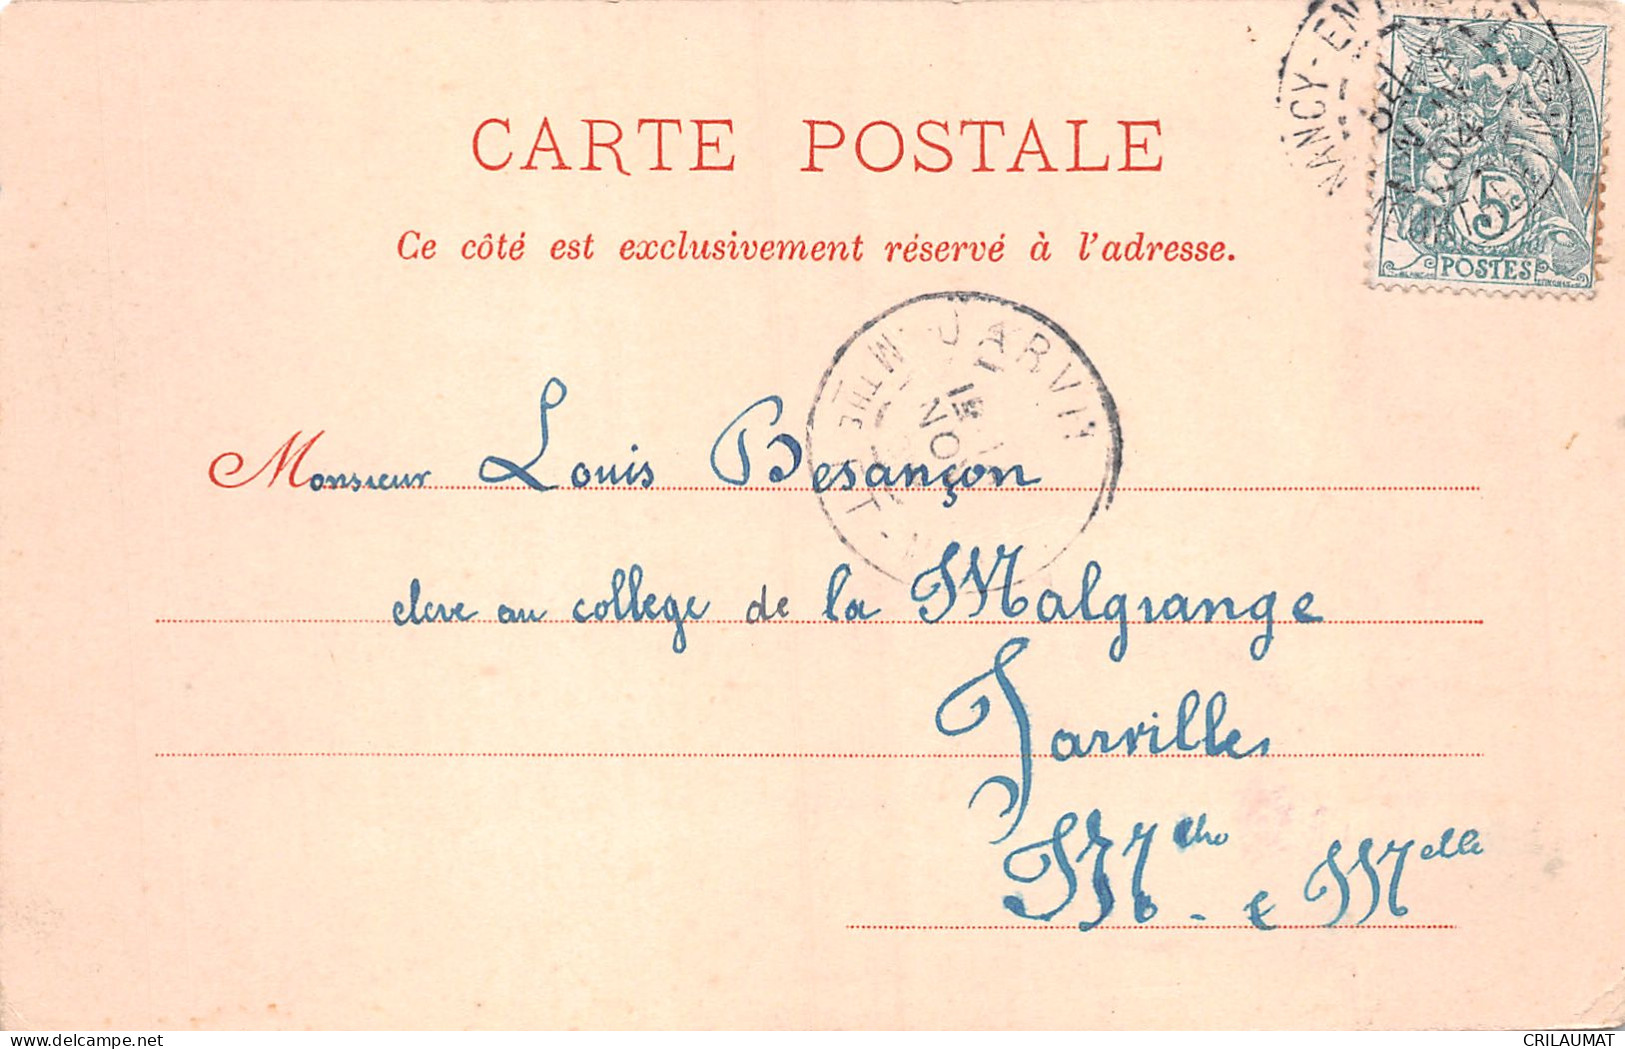 CARTE POSTALE
Ce côté est exclusivement réservé à l'adresse.
NANCY-EN
04
5
POSTES
JARVI
MTHE
15
NO
Monsieur Louis Besançon
eleve au college de la Malgrange
Jarville
Mthe - e Melle
CRILAUMAT